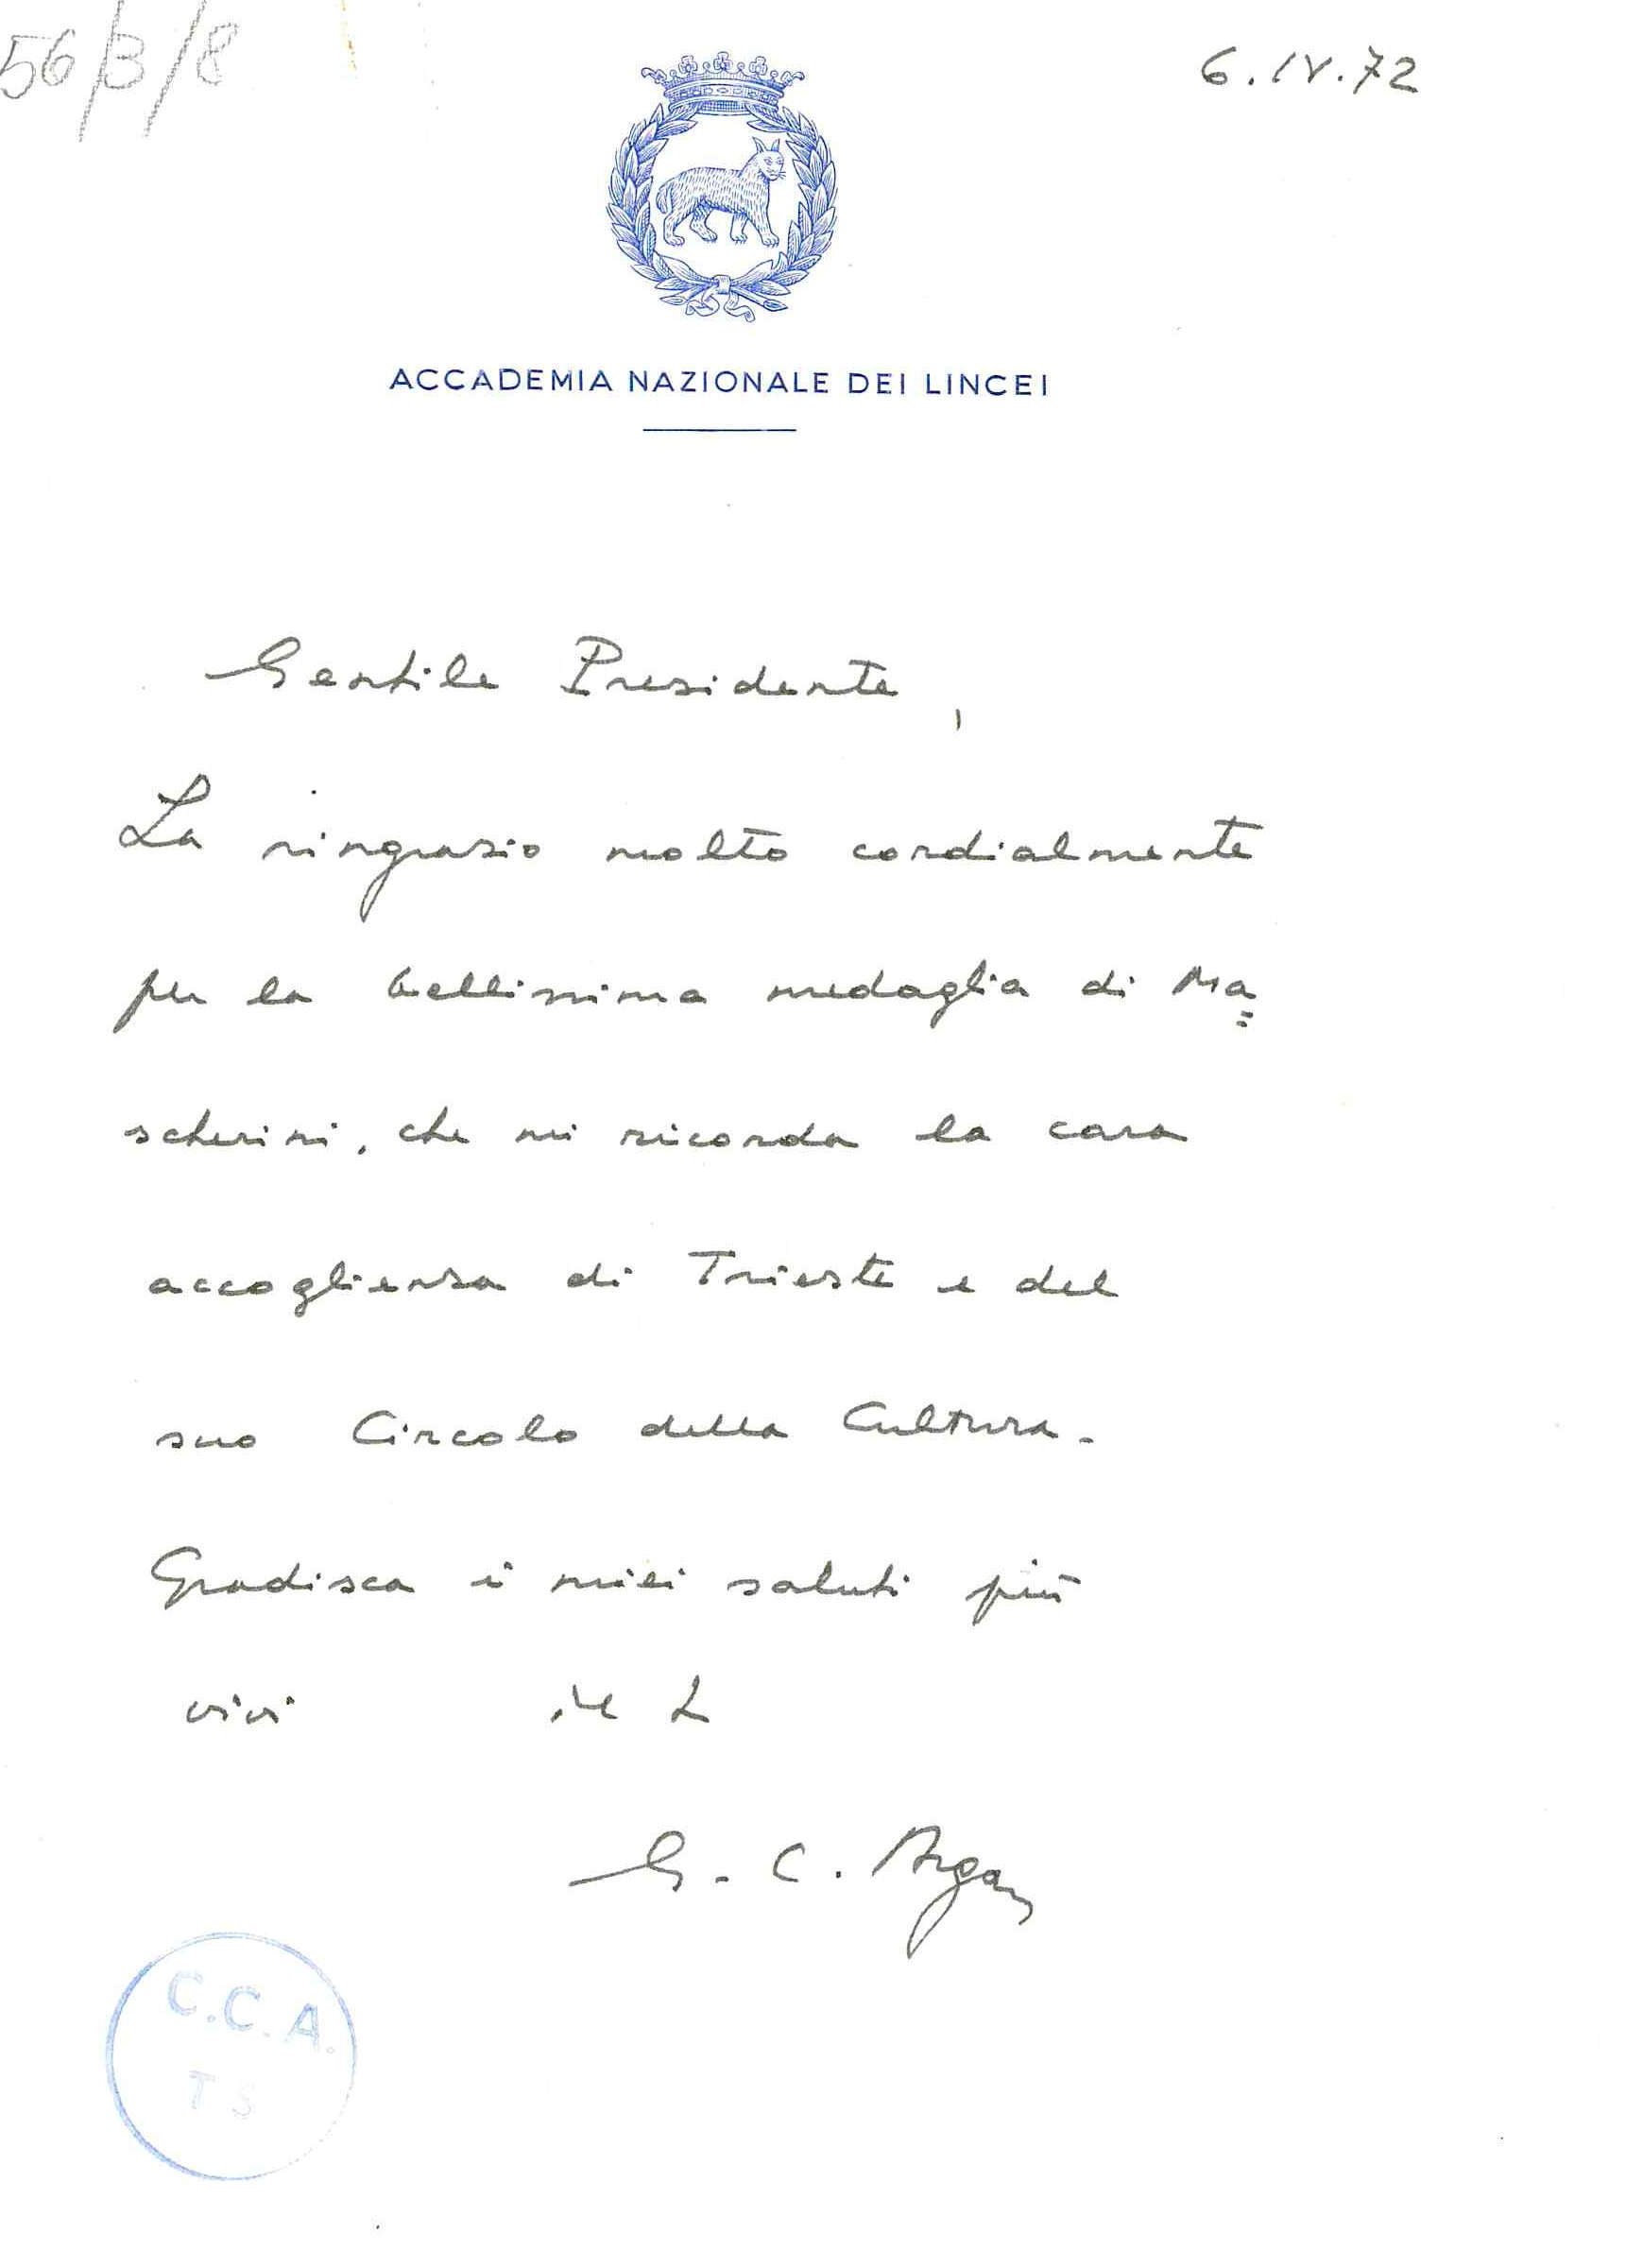 56/3/8
6.IV.72
ACCADEMIA NAZIONALE DEI LINCEI
Gentile Presidente,
La ringrazio molto cordialmente
per la bellissima medaglia di Ma=
scherini, che mi ricorda la cara
accoglienza di Trieste e del
suo Circolo della Cultura.
Gradisca i miei saluti più
vivi
G. C. Argan
C.C.A.
TS